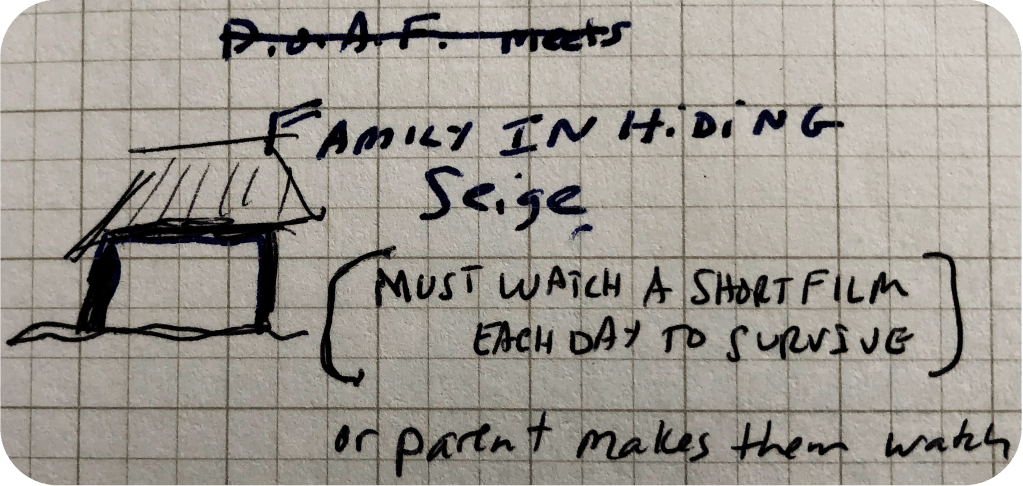 D.o.A.F. meets
FAMILY IN HiDiNG
Seige
(MUST WATCH A SHORT FILM
EACH DAY TO SURVIVE)
or parent makes them watch